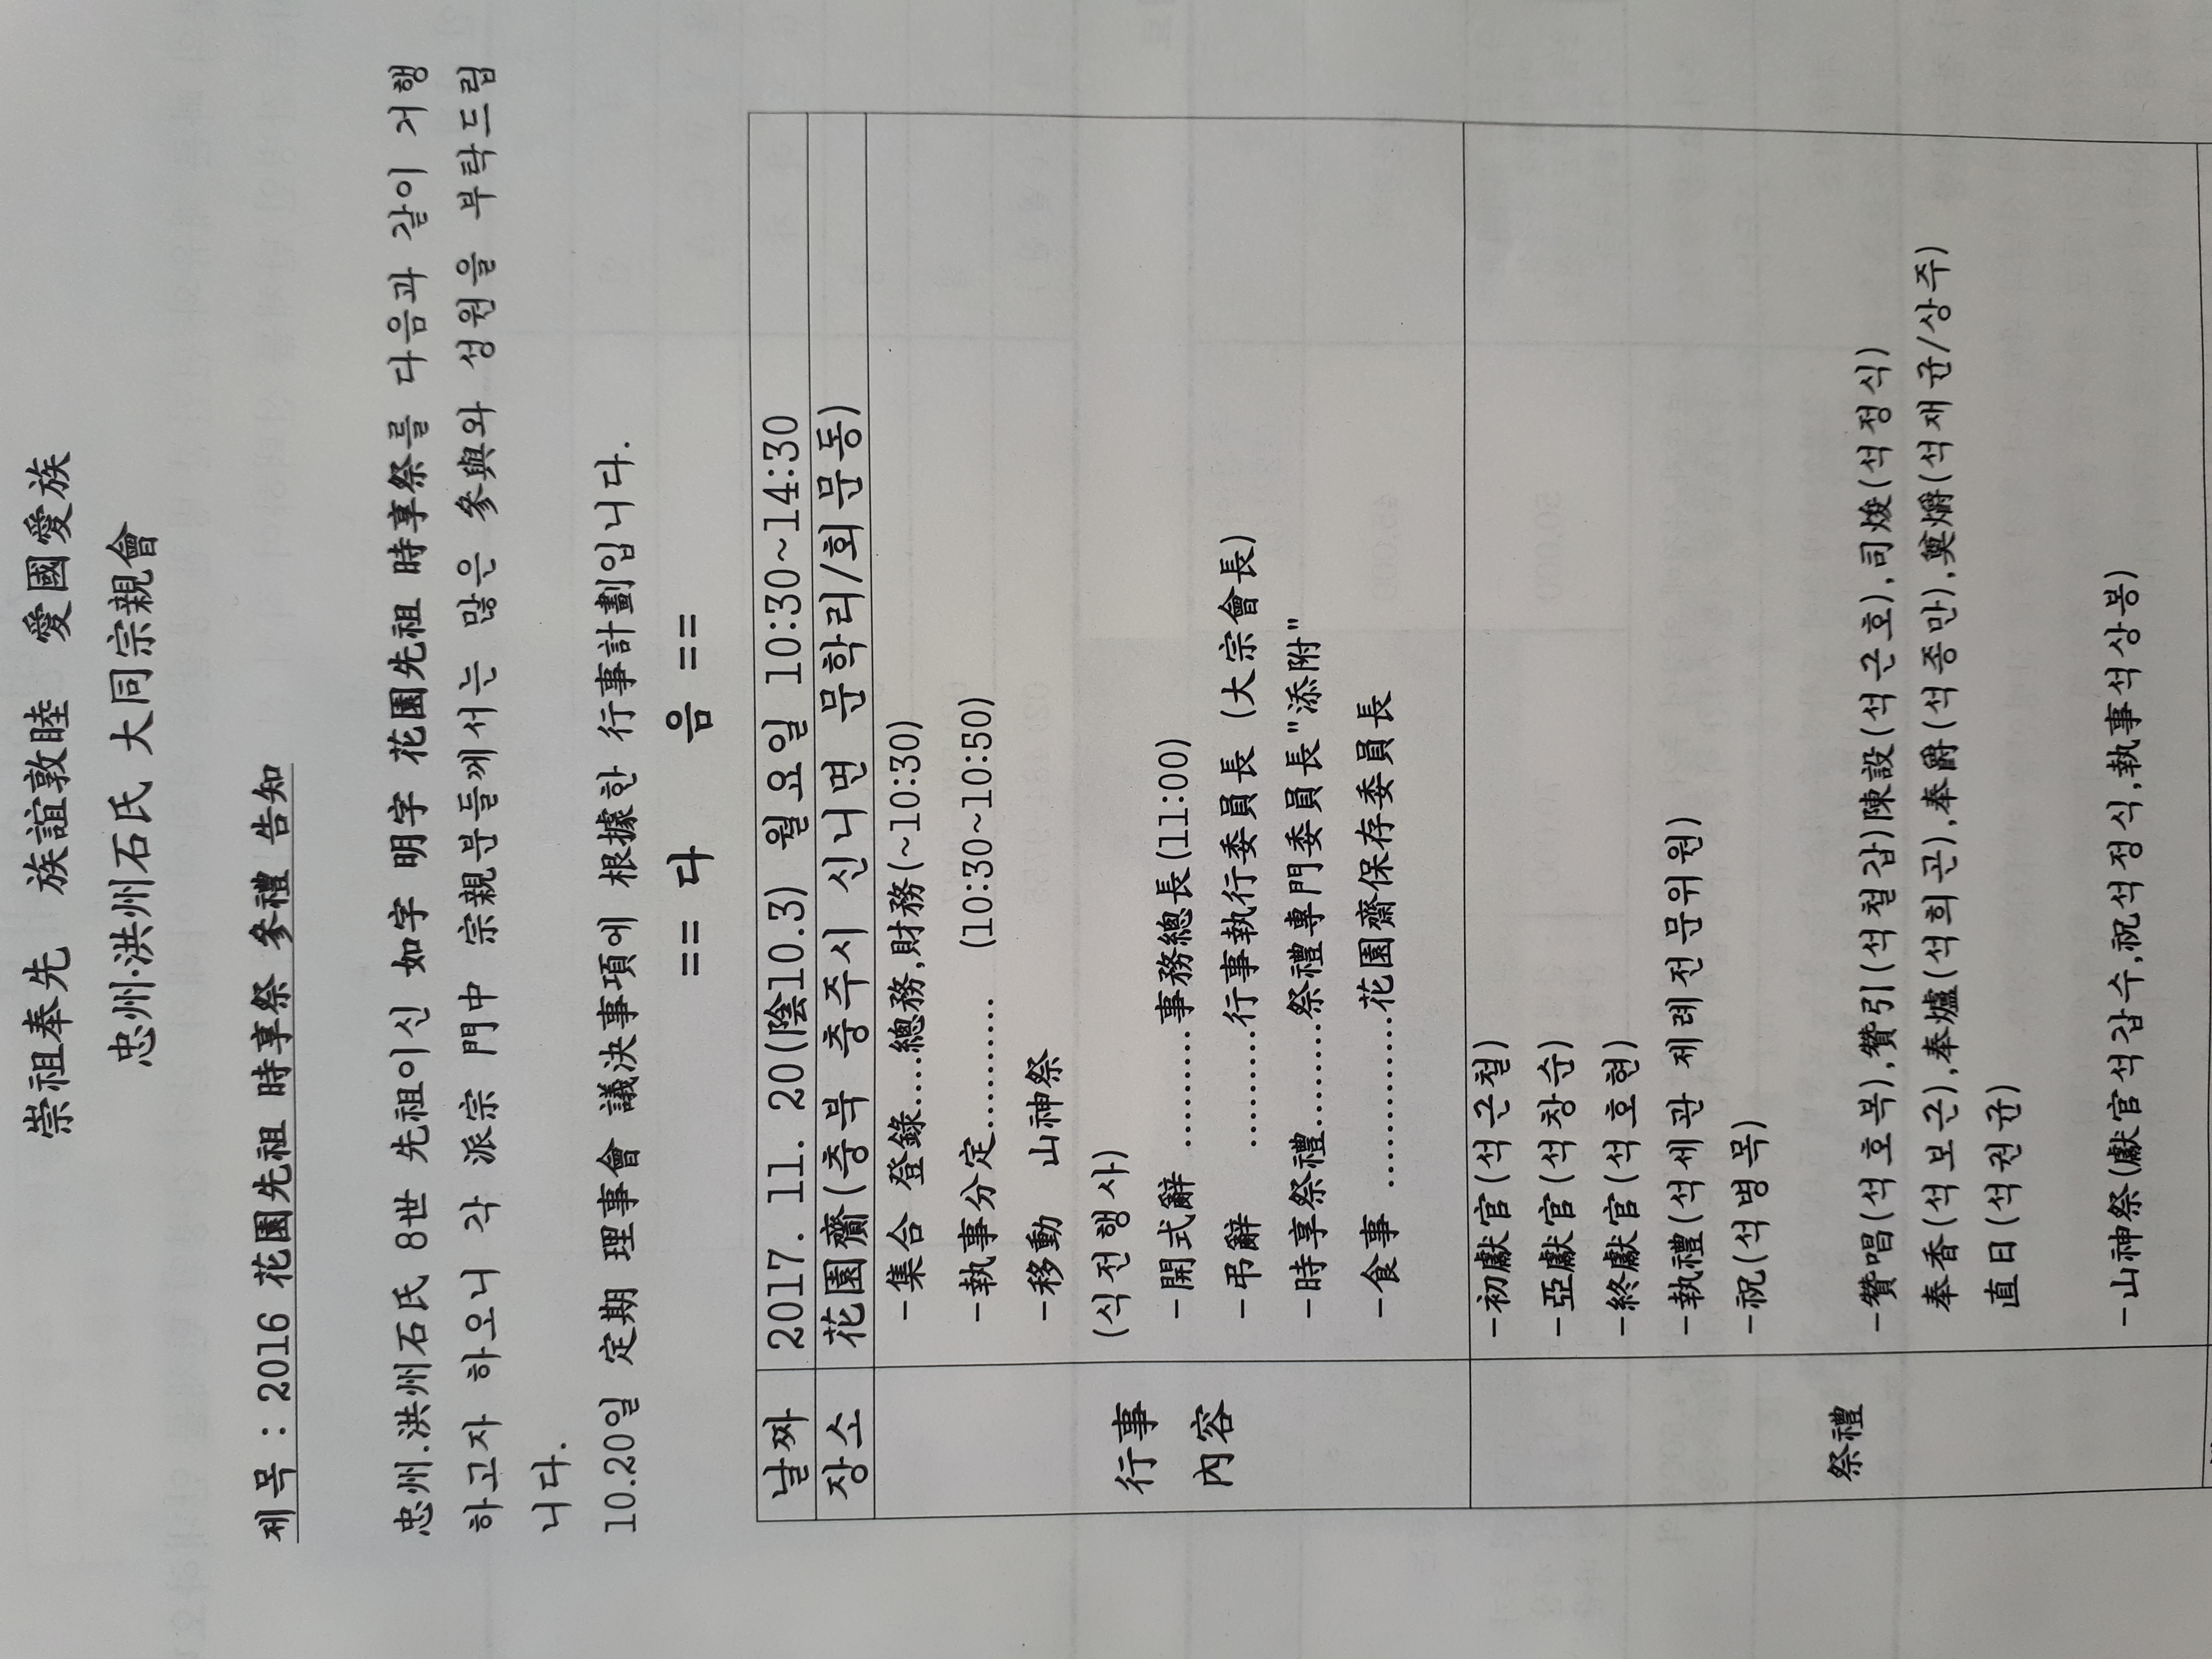 崇祖奉先 族誼敦睦 愛國愛族
忠州·洪州石氏 大同宗親會
제목 : 2016 花園先祖 時享祭 參禮 告知
忠州.洪州石氏 8世 先祖이신 如字 明字 花園先祖 時享祭를 다음과 같이 거행
하고자 하오니 각 派宗 門中 宗親분들께서는 많은 參與와 성원을 부탁드립
니다.
10.20일 定期 理事會 議決事項에 根據한 行事計劃입니다.
== 다 음 ==
날짜 2017. 11. 20(陰10.3) 월요일 10:30~14:30
장소 花園齋(충북 충주시 신니면 문학리/회문동)
行事
內容
-集合 登錄.....總務,財務(~10:30)
-執事分定............ (10:30~10:50)
-移動 山神祭
(식전행사)
-開式辭 ............事務總長(11:00)
-弔辭 ............行事執行委員長 (大宗會長)
-時享祭禮...........祭禮專門委員長"添附"
-食事 ..................花園齋保存委員長
祭禮
-初獻官(석근철)
-亞獻官(석창순)
-終獻官(석호현)
-執禮(석세관 제례전문위원)
-祝(석병목)
-贊唱(석호복),贊引(석철갑)陳設(석근호),司焌(석정식)
奉香(석보근),奉爐(석희곤),奉爵(석종만),奠爝(석재균/상주)
直日(석권균)
-山神祭(獻官석갑수,祝석정식,執事석상봉)